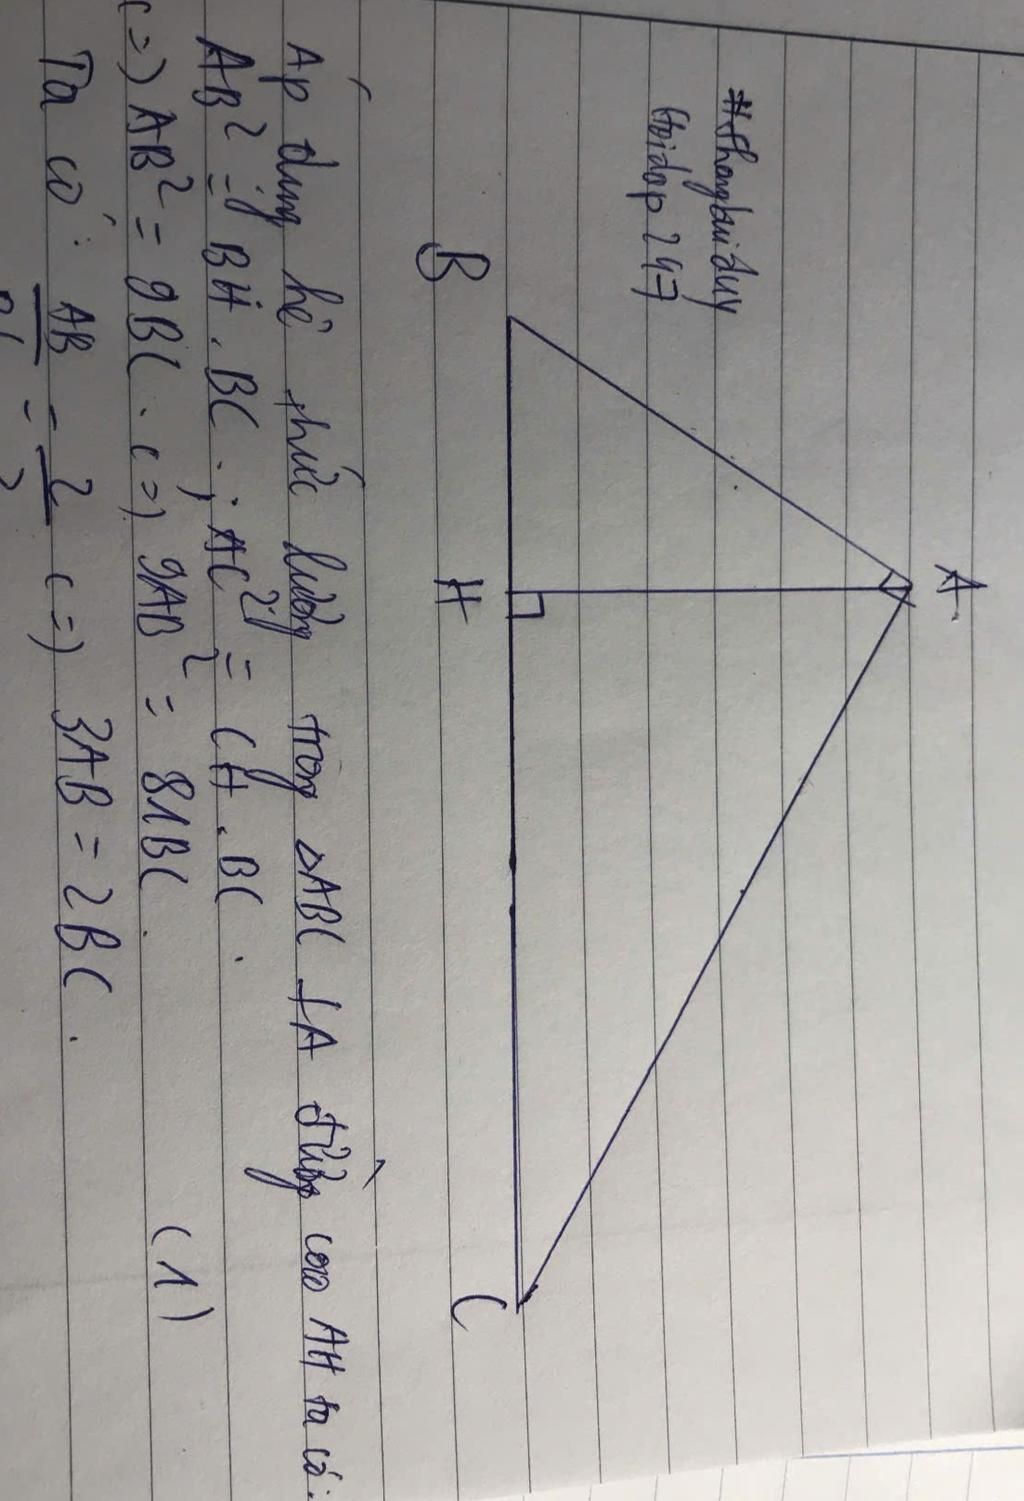 #thangbuiduy
Hoidap247
A
B
H
C
Áp dụng hệ thức lượng trong ΔABC ⊥A đường cao AH ta có.
AB² = BH . BC ; AC² = CH . BC .
(=) AB² = 9BC . (=) 9AB² = 81BC . (1)
Ta có : AB/ = 2/ (=) 3AB = 2BC .